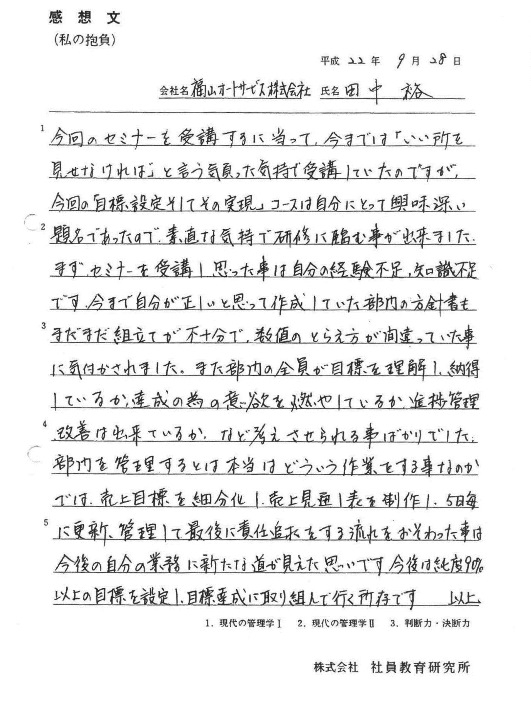 感想文
(私の抱負)
平成 22年 9月 28日
会社名 福山オートサービス株式会社 氏名 田中 裕
1 今回のセミナーを受講するに当って、今までは「いい所を
見せなければ」と言う気負った気持で受講していたのですが、
今回の「目標設定そしてその実現」コースは自分にとって興味深い
2 題名であったので、素直な気持で研修に臨む事が出来ました。
まず、セミナーを受講し思った事は自分の経験不足、知識不足
です。今まで自分が正しいと思って作成していた部内の方針書も
3 まだまだ組立てが不十分で、数値のとらえ方が間違っていた事
に気付かされました。また部内の全員が目標を理解し、納得
しているか、達成の為の意欲を燃やしているか、進捗管理
4 改善は出来ているか、など考えさせられる事ばかりでした。
部内を管理するとは本当はどういう作業をする事なのか
では、売上目標を細分化し、売上見通し表を制作し、5日毎
5 に更新、管理して最後に責任追及をする流れをおそわった事は
今後の自分の業務に新たな道が見えた思いです。今後は純度90%
以上の目標を設定し、目標達成に取り組んで行く所存です 以上
1．現代の管理学Ⅰ 2．現代の管理学Ⅱ 3．判断力・決断力
株式会社 社員教育研究所